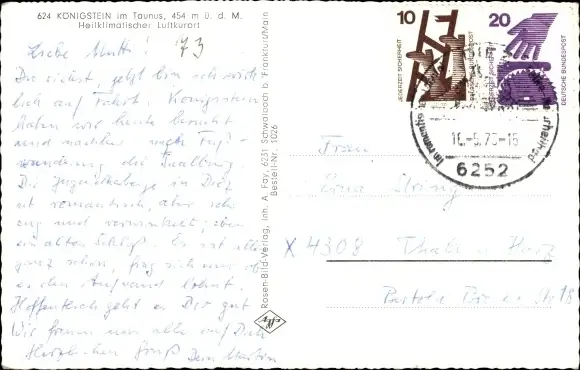 624 KÖNIGSTEIN im Taunus, 454 m ü. d. M.
Heilklimatischer Luftkurort
Liebe Mutti! 73
Du siehst, jetzt bin ich wirk
lich auf Fahrt. Königstein
haben wir heute besucht
und machten noch Fuß-
wanderung die
Die Jugendherberge in Diez
ist romantisch, aber sehr
eng und verwinkelt; eben
ein altes Schloß. Es ist alles
ganz schön, frag sich nur ob
es den Aufwand lohnt.
Hoffentlich geht es Dir gut
Wir freuen uns alle auf Dich
Herzlichen Gruß Dein Martin
Rosen-Bild-Verlag, Inh. A. Fay, 6231 Schwalbach b. Frankfurt/Main
Bestell-Nr. 1026
10
JEDERZEIT SICHERHEIT
DEUTSCHE BUNDESPOST
20
JEDERZEIT SICHERHEIT
DEUTSCHE BUNDESPOST
16.-5.73-15
6252
Frau
Erna
x 4308 Thale Harz
Str 18